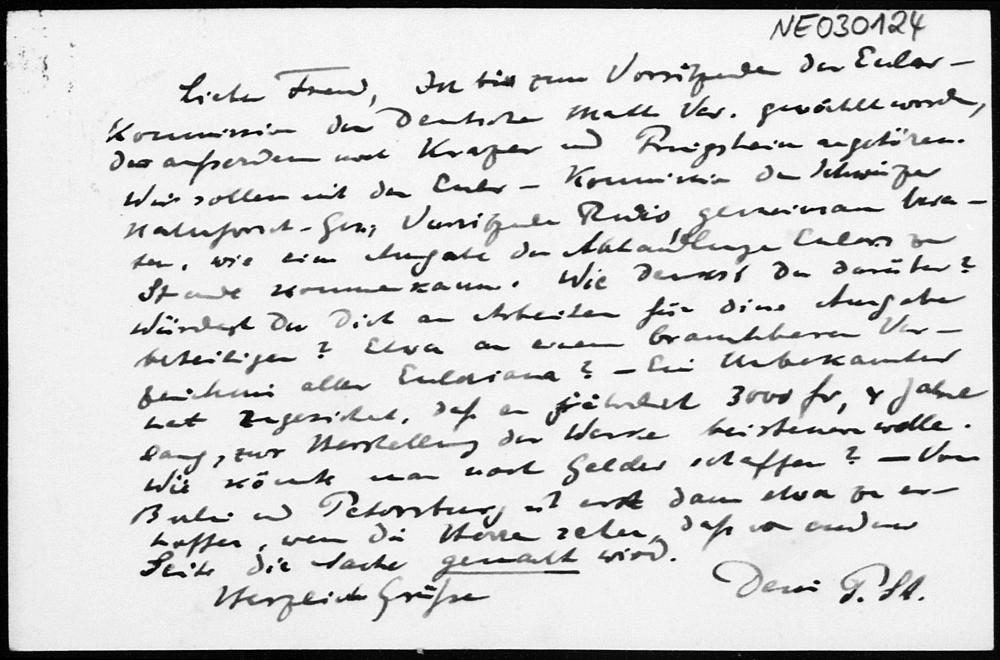 NE030124
Lieber Freund, Ich bin zum Vorsitzenden der Euler-
Kommission der Deutschen Math Ver. gewählt worden,
der außerdem noch Krazer und Pringsheim angehören.
Wir sollen mit der Euler-Kommission der Schweizer
Naturforsch-Ges, Vorsitzender Rudio gemeinsam bera-
ten, wie eine Ausgabe der Abhandlungen Eulers zu
Stande kommen kann. Wie denkst Du darüber?
Würdest Du Dich an Arbeiten für diese Ausgabe
beteiligen? Etwa an einem brauchbaren Ver-
zeichnis aller Euleriana? - Ein Unbekannter
hat zugesichert, daß er jährlich 3000 fr, 4 Jahre
lang, zur Herstellung der Werke beisteuern wolle.
Wie könnte man noch Gelder schaffen? - Von
Berlin und Petersburg ist erst dann etwa zu er-
hoffen, wenn die Herren sehen, daß von anderer
Seite die Sache gemacht wird.
Herzliche Grüße
Dein P. St.